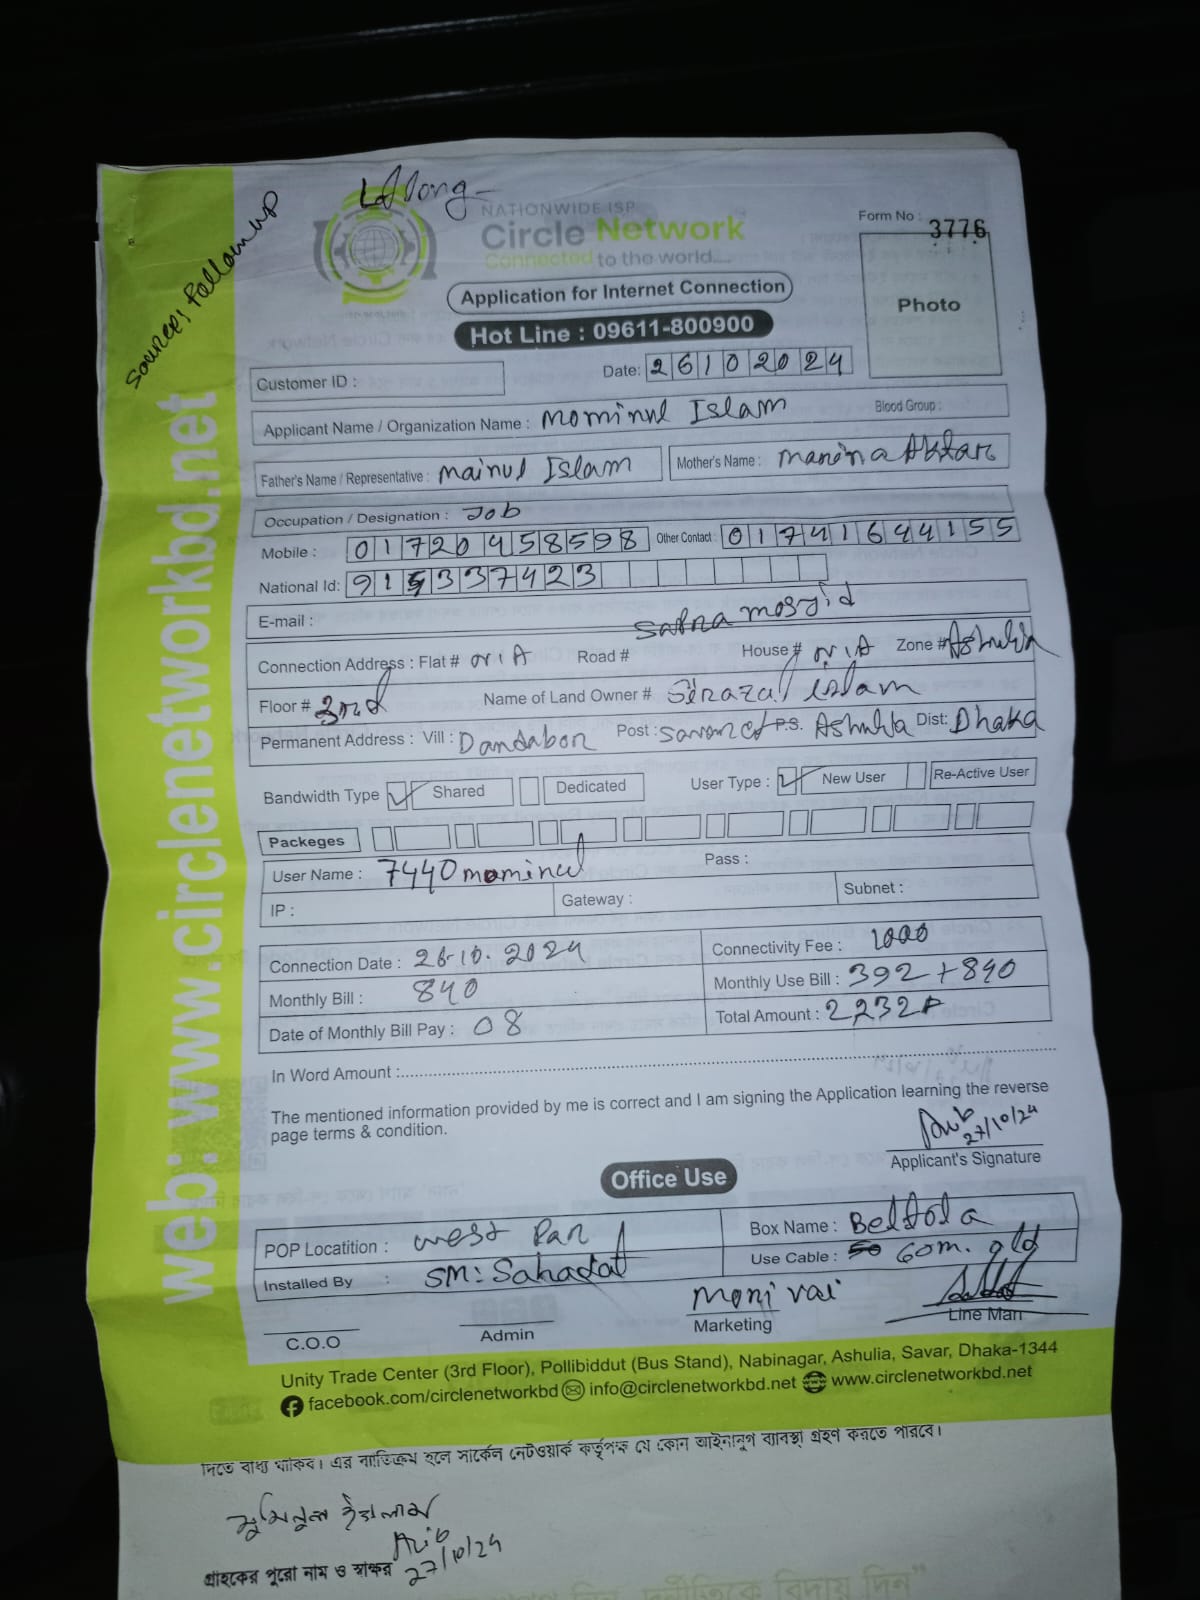 Sources Follow up
NATIONWIDE ISP
Circle Network
Connected to the world....
Form No : 3776
Photo
Application for Internet Connection
Hot Line : 09611-800900
Customer ID :
Date: 26102024
Applicant Name / Organization Name : Mominul Islam Blood Group :
Father's Name / Representative : Mainul Islam Mother's Name : Manina Aktar
Occupation / Designation : Job
Mobile : 01720458598 Other Contact : 01741644155
National Id: 915337423
E-mail :
Sabna mosjid
Connection Address : Flat # N/A Road # House # N/A Zone # Ashulia
Floor # 3rd Name of Land Owner # Sirazal islam
Permanent Address : Vill : Dandabor Post : Savar ct P.S. Ashulia Dist: Dhaka
Bandwidth Type Shared Dedicated User Type : New User Re-Active User
Packeges
User Name : 7440mominul Pass :
IP : Gateway : Subnet :
Connection Date : 26-10-2024 Connectivity Fee : 1000
Monthly Bill : 840 Monthly Use Bill : 392+840
Date of Monthly Bill Pay : 08 Total Amount : 2232
In Word Amount :
The mentioned information provided by me is correct and I am signing the Application learning the reverse
page terms & condition.
27/10/24
Applicant's Signature
Office Use
POP Locatition : West Par Box Name : Beltola
Installed By : SM: Sahadat Use Cable : 60m. old
Moni vai
C.O.O Admin Marketing Line Man
Unity Trade Center (3rd Floor), Pollibiddut (Bus Stand), Nabinagar, Ashulia, Savar, Dhaka-1344
facebook.com/circlenetworkbd info@circlenetworkbd.net www.circlenetworkbd.net
web: www.circlenetworkbd.net
দিতে বাধ্য থাকিব। এর ব্যতিক্রম হলে সার্কেল নেটওয়ার্ক কর্তৃপক্ষ যে কোন আইনানুগ ব্যবস্থা গ্রহণ করতে পারবে।
মুমিনুল ইসলাম
27/10/24
গ্রাহকের পুরো নাম ও স্বাক্ষর